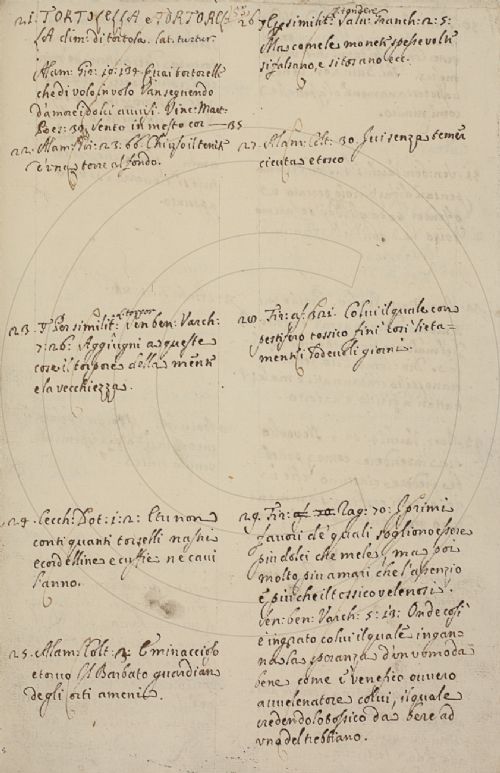 21. TORTOLELLA e TORTOREL
LA dim: di tortola. lat. turtur.
Alam: Gio: 19: 134. Quai tortorelle
che di volo in volo Van seguendo
d'amor i dolci
Poes: 39. Vento in mesto cor — 35
22. Alam: 23: 66. Chiuso il tenit
e 'n una torre al fondo.
23. Per similit: Torpore Sen: ben: Varch:
7: 26. Aggiugni a queste
cose il torpore della mente
e la vecchiezza.
24. Cecch: Dot: 1: 2: E tu non
conti quanti torselli nastri
e cordelline e cuffie ne cavi
l'anno.
25. Alam: Colt: E minaccioso
e torvo Il Barbato guardian
degli orti ameni.
26. Per similit: Tignere Franch: 2: 5:
Ma come le monete spesse volte
si falsano, e si tosano ecc.
27. Alam: Colt: 30. Ivi senza temer
cicuta e tosco
28. Fir: Colui il quale con
pestifero tossico finì così lieta-
mente i lodevoli giorni.
29. Fir: Rag: 70: I primi
favori de' quali sogliono essere
più dolci che mele, ma poi
molto più amari che l'assenzio
e più che il tossico velenosi.
Sen: ben: Varch: 5: 13: Onde così
è ingrato colui il quale ingan-
na la speranza d'un uomo da
bene come è venefico ovvero
avvelenatore colui, il quale
credendolo tossico da bere ad
uno del trebbiano.